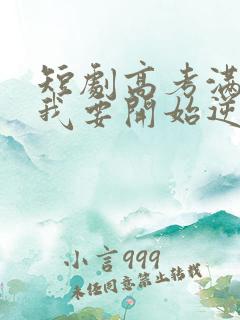 短劇高考滿
我要開始逆
小言999
未经同意禁止转载